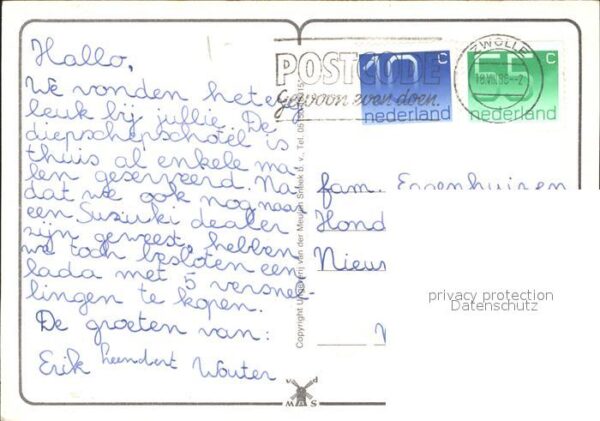 Hallo,
We vonden het erg
leuk bij jullie. De
diepschepschotel is
thuis al enkele ma-
len geserveerd. Na-
dat we ook nog naar
een Suzuki dealer
zijn geweest, hebben
we toch besloten een
lada met 5 versnel-
lingen te kopen.
De groeten van:
Erik Leendert Wouter
POSTCODE
gewoon even doen.
ZWOLLE
100 C
nederland
55 C
nederland
fam. Eggenhuizen
Hond
Nieuw
privacy protection
Datenschutz
Copyright Uitgeverij van der Meulen Sneek b. v., Tel.
v d
M S